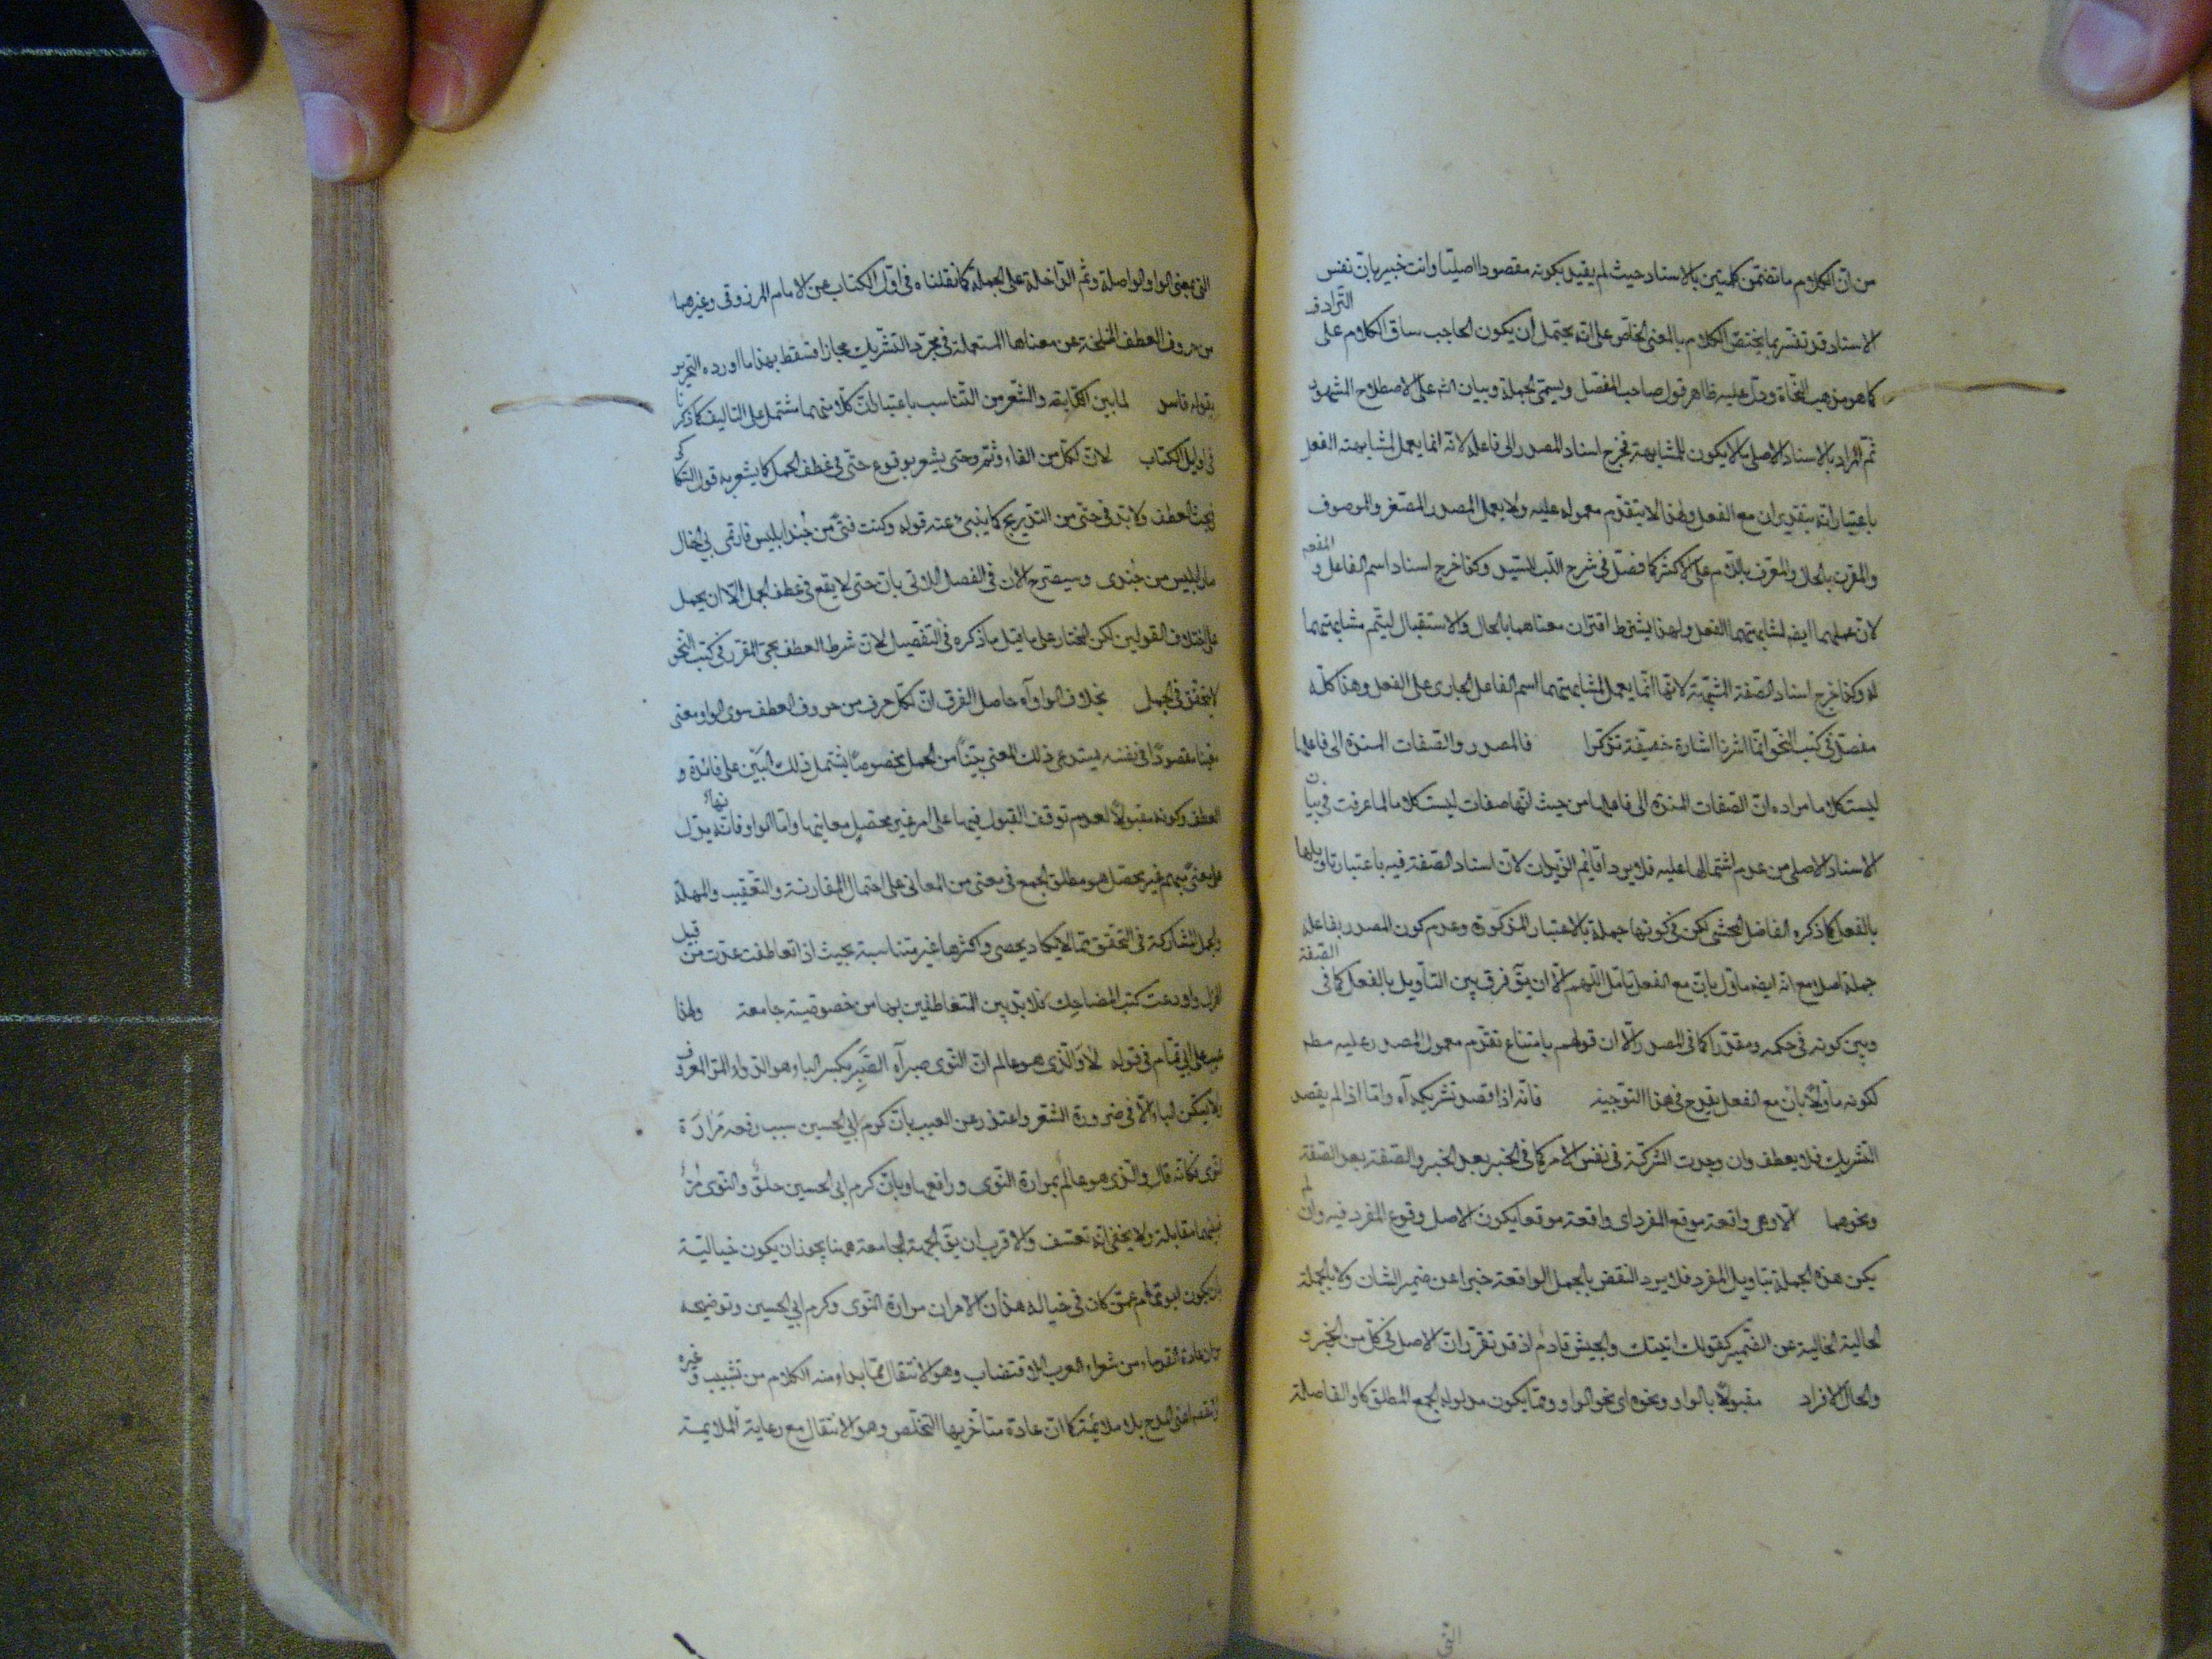 من ان الكلام ما تضمن كلمتين بالاسناد حيث لم يقيد بكونه مقصودا اصليا وانت خبير بان نفس
الاسناد قد تفسر بما يختص الكلام بالمعنى الخاص على انه يحتمل ان يكون الحاجب ساق الكلام على الترادف
كما هو مذهب النحاة ودل عليه ظاهر قول صاحب المفصل ويسمى الجملة وبيان على الاصطلاح المشهور
ثم المراد بالاسناد الاصلى ما لا يكون للمشابهة فخرج اسناد المصدر الى فاعله لانه انما يعمل لمشابهته الفعل
باعتبار انه بتقدير ان مع الفعل ولهذا لا يتقدم معموله عليه ولا يعمل المصدر المصغر والموصوف
والمقرن بالحال والمعرف باللام على الاكثر كما فصل فى شرح اللب للسيد وكذا خرج اسناد اسم الفاعل و المفعو
لان عملهما ايضا لمشابهتهما الفعل ولهذا يشترط اقتران معناهما بالحال والاستقبال ليتم مشابهتهما
له وكذا خرج اسناد الصفة المشبهة لانها انما يعمل لمشابهتهما اسم الفاعل الجارى على الفعل وهذا كله
مفصل فى كتب النحو انما اشرنا اشارة خفيفة تذكرا فالمصدر والصفات المسندة الى فاعلها
ليست كلاما مراده ان الصفات المسندة الى فاعلها من حيث انها صفات ليست كلاما لما عرفت فى بيان
الاسناد الاصلى من عدم اشتمالها عليه فلا يرد اقايم الزيدان لان اسناد الصفة فيه باعتبار تاويلها
بالفعل كما ذكره الفاضل المحشى لكن فى كونها جملة بالاعتبار المذكورة وعدم كون المصدر بفاعله
جملة اصلا مع انه ايضا ماول بان مع الفعل تامل اللهم الا ان يق فرق بين التاويل بالفعل كما فى الصفة
وبين كونه فى حكمه ومقدرا كما فى المصدر الا ان قولهم بامتناع تقدم معمول المصدر عليه مطم
لكونه ماولا بان مع الفعل يقدح فى هذا التوجيه فانه اذا قصد تشريكه آه واما اذا لم يقصد
التشريك فلا يعطف وان وجدت الشركة فى نفس الامر كما فى الخبر بعد الخبر والصفة بعد الصفة
ونحوهما الا وهى واقعة موقع المفرد اى واقعة موقعا يكون الاصل وقوع المفرد فيه وان لم
يكن هذه الجملة بتاويل المفرد فلا يرد النقض بالجمل الواقعة خبرا عن ضمير الشان ولا بالجملة
الحالية الخالية عن الضمير كقولك اتيتك والجيش قادم اذ قد تقرر ان الاصل فى كل من الخبر و
والحال الافراد مقبولا بالواو ونحوه اى نحو الواو ومما يكون مدلوله الجمع المطلق كاو الفاصلة
التى
التى بمعنى الواو الواصلة وثم الداخلة على الجملة كما نقلناه فى اول الكتاب عن الامام المرزوقى وغيرهما
من حروف العطف عن معناها المستعملة فى مجرد التشريك مجازا فسقط بهذا ما اورده التحرير
بقوله فاسد لما بين الكتابة والشعر من التناسب باعتبار ان كلا منهما مشتمل على التاليف كما ذكرنا
فى اوايل الكتاب لان لكل من الفاء وثم وحتى يشعر بوقوع حتى فى عطف الجمل كما يشعر به قول السكاكى
ولابد فى حتى من التدريج كما ينبئ عنه قوله وكنت فتى من جند ابليس فارتمى بى الحال
ابليس من جندى وسيصرح الآن فى الفصل الآتى بان حتى لا يقع فى عطف الجمل الا ان يحمل
على اختلاف القولين لكن المختار على ما قيل ما ذكره فى التفصيل لان شرط العطف بحتى المقرر فى كتب النحو
لا يتحقق فى الجمل بخلاف الواو آه حاصل الفرق ان لكل حرف من حروف العطف سوى الواو معنى
مقصودا فى نفسه يستدعى ذلك المعنى من الجمل مخصوصا يشتمل ذلك على فائدة و
العطف وكونه مقبولا لعدم توقف القبول فيها على امر غير محصل معانيها واما الواو فانه يدل
على معنى مبهم غير محصل هو مطلق الجمع فى معنى من المعانى على احتمال المقارنة والتعقيب والمهلة
والجمل المشاركة فى التحقق مما لا يكاد يحصى واكثرها غير متناسبة بحيث اذا تعاطفت عدت من قبيل
الهزل واودعت كتب المضاحك فلابد بين المتعاطفين بها من خصوصية جامعة ولهذا
عيب على ابى تمام فى قوله لا والذى هو عالم ان النوى صبر آه الصبر بكسر الباء هو الدواء المر المعروف
ولا يسكن الباء الا فى ضرورة الشعر واعتذر عن العيب بان كرم ابى الحسين سبب رفعه مرارة
النوى فكانه قال والذى هو عالم بمرارة النوى ورافعها وبان كرم ابى الحسين حلو والنوى مر
فبينهما مقابلة ولا يخفى انه تعسف والاقرب ان يق الجهة الجامعة ههنا يجوز ان يكون خيالية
بان يكون ابو تمام ممن كان فى خياله هذان الامران مرارة النوى وكرم ابى الحسين وتوضيحه
من ان عادة القدماء من شعراء العرب الاقتضاب وهو الانتقال مما بداء منه الكلام من تشبيب وغيره
اعنى المدح بلا ملايمة كما ان عادة متاخريها التخلص وهو الانتقال مع رعاية الملايمة